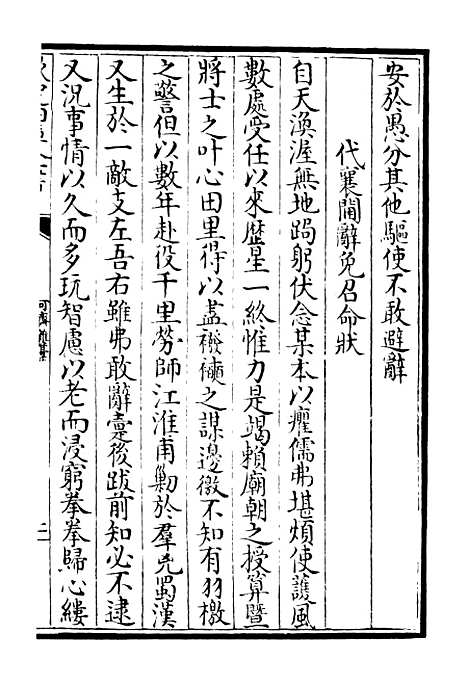 安於愚分其他驅使不敢避辭
代襄閫辭免召命狀
自天渙渥無地跼躬伏念某本以癯儒弗堪煩使護風
數處受任以來歷星一終惟力是竭賴廟朝之授算暨
將士之叶心田里得以盡襏襫之謀邊徼不知有羽檄
之警但以數年赴役千里勞師江淮甫勦於羣兇蜀漢
又生於一敵支左吾右雖弗敢辭疐後跋前知必不逮
又況事情以久而多玩智慮以老而浸窮拳拳歸心縷
可齋雜藁
二